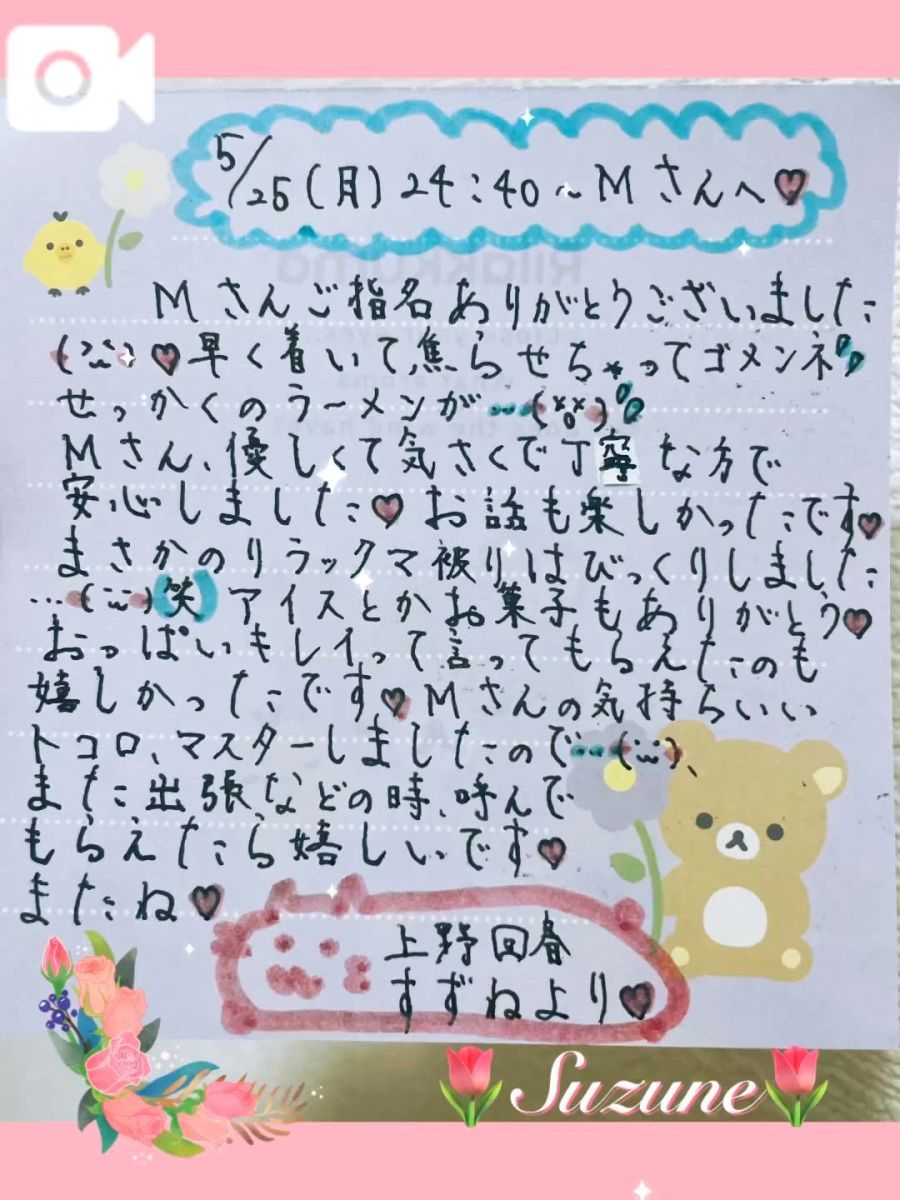 5/25(月)24:40~Mさんへ♥
Mさんご指名ありがとうございました
♥早く着いて焦らせちゃってゴメンネ
せっかくのラーメンが…(×o×)
Mさん、優しくて気さくで丁寧な方で
安心しました♥お話も楽しかったです♥
まさかのリラックマ被りはびっくりしました
…(笑)アイスとかお菓子もありがとう♥
おっぱいキレイって言ってもらえたのも
嬉しかったです♥Mさんの気持ちいい
トコロ、マスターしましたので…、
また出張などの時、呼んで
もらえたら嬉しいです♥
またね♥
上野回春
すずねより♥
Suzune